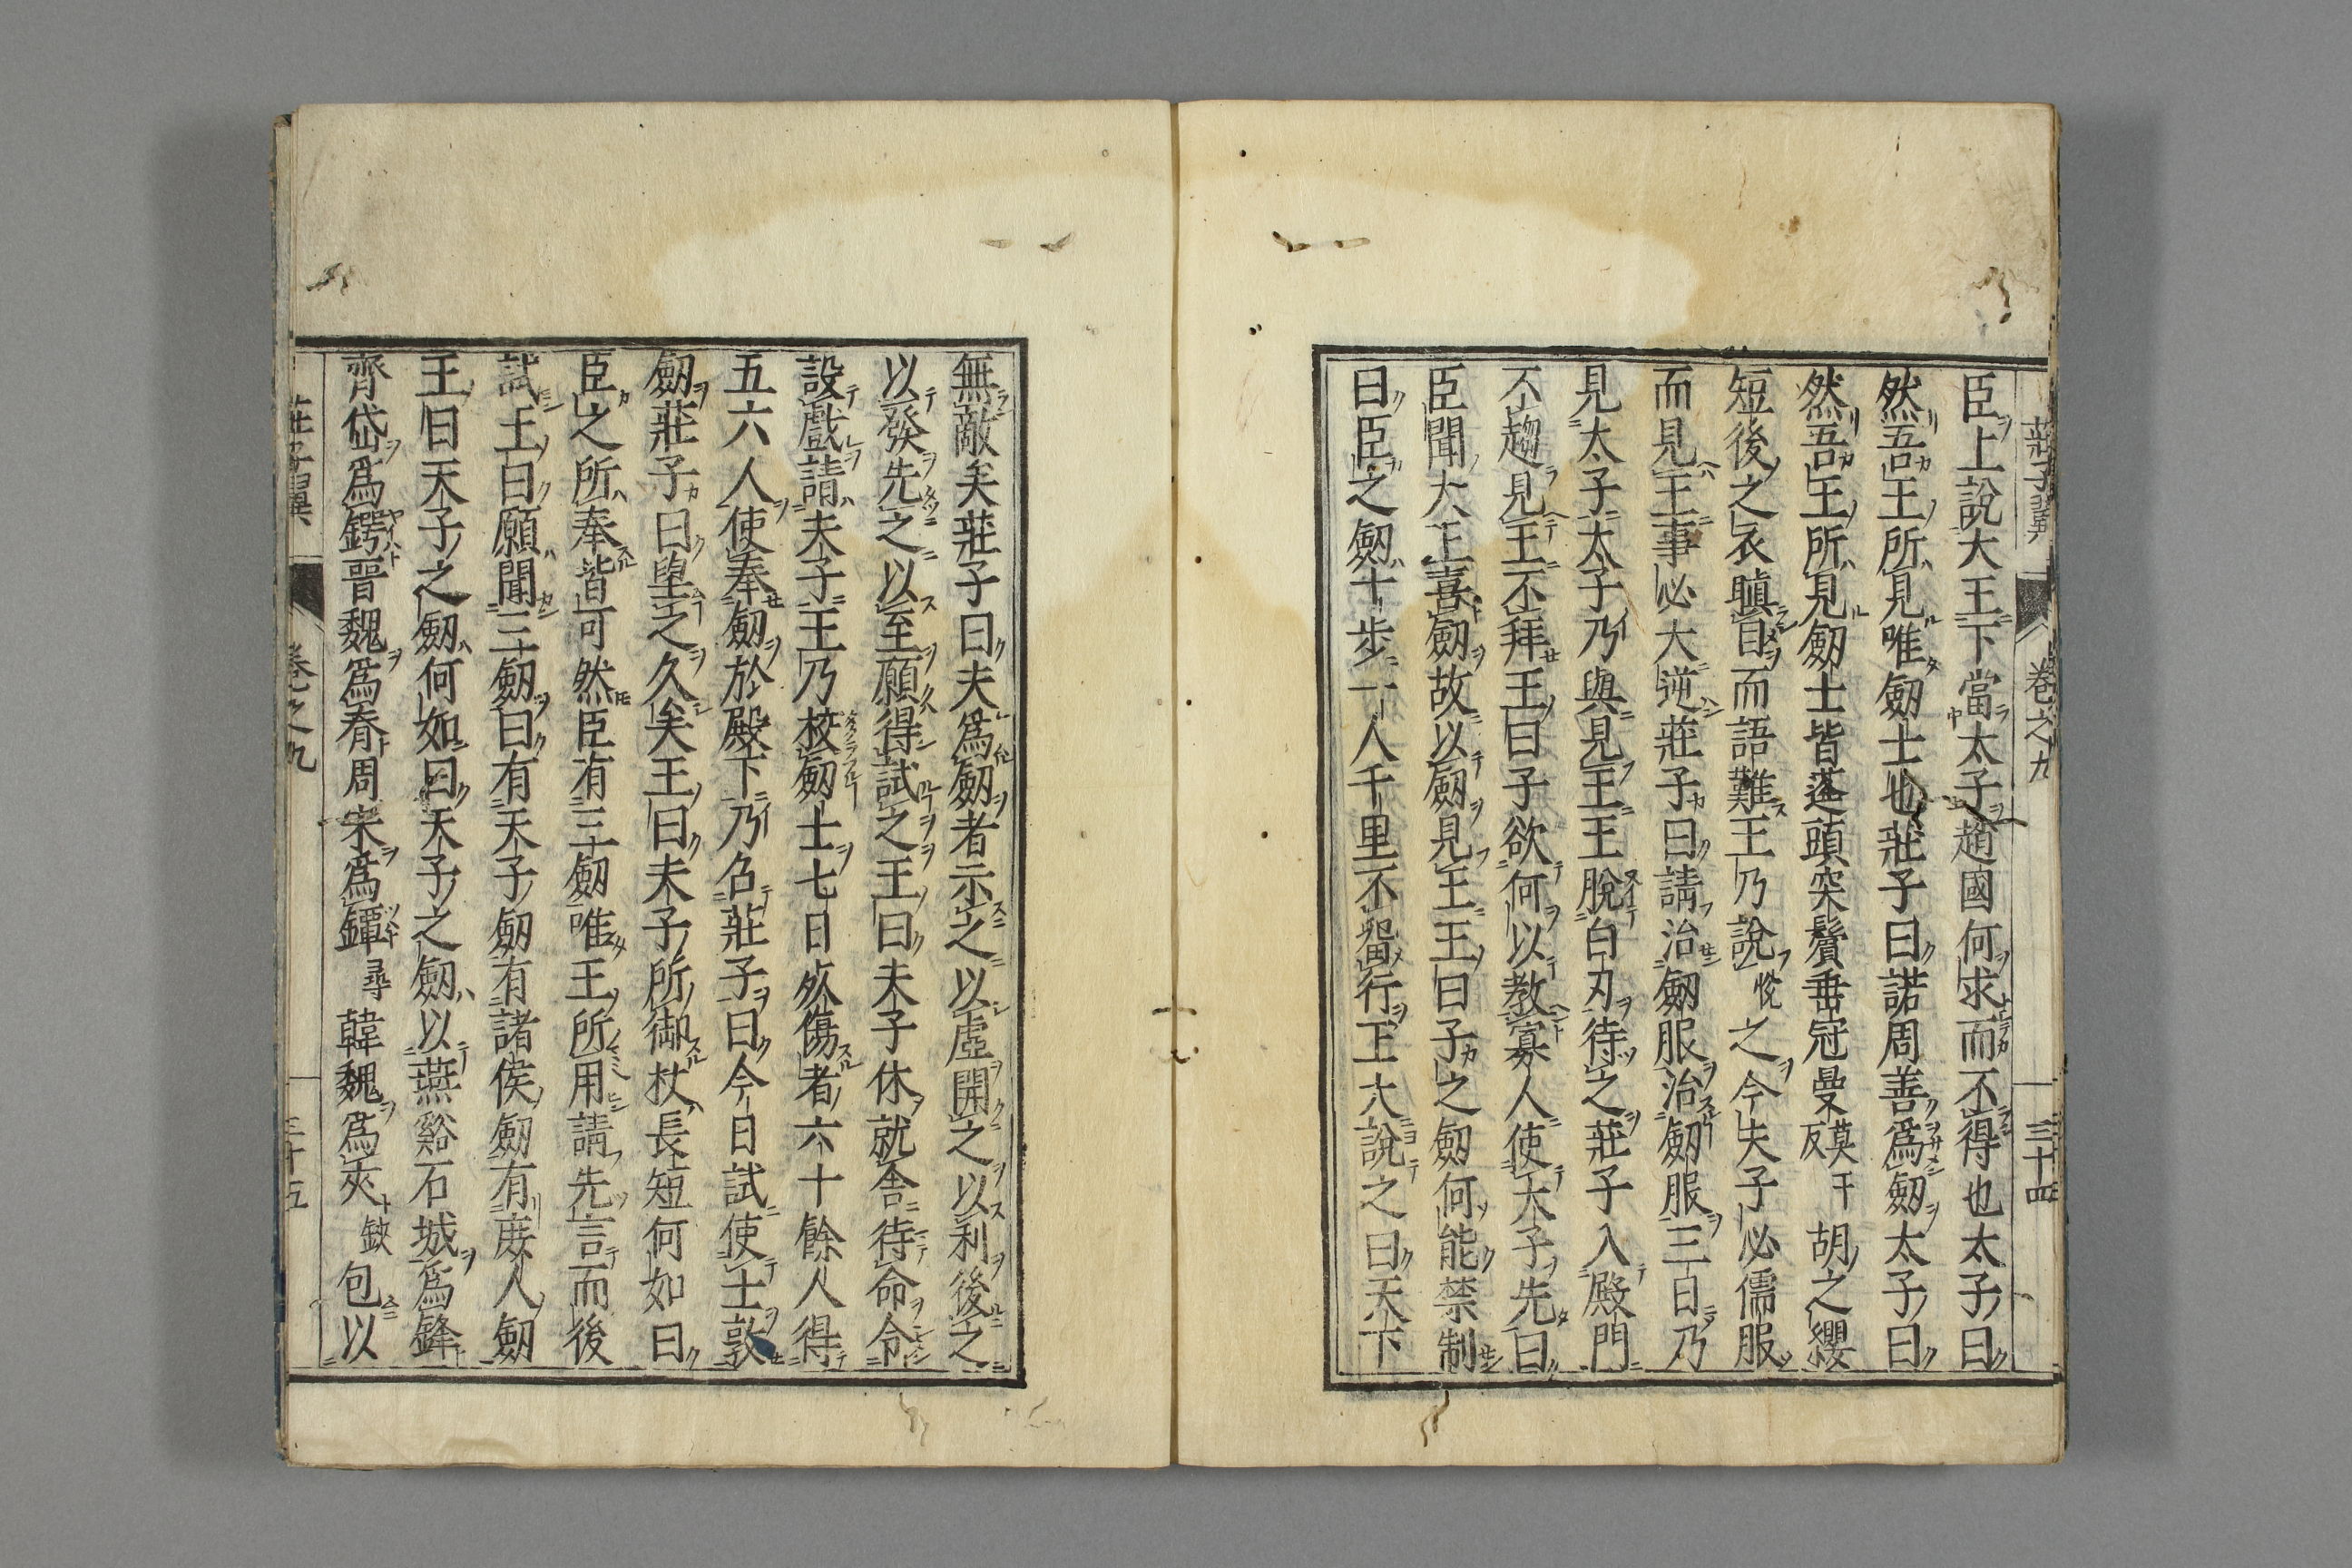 莊子翼 卷之九 三十四
臣上說大王下當太子趙國何求而不得也太子曰
然吾王所見唯劒士也莊子曰諾周善爲劒太子曰
然吾王所見劒士皆蓬頭突鬢垂冠曼莫干反胡之纓
短後之衣瞋目而語難王乃說悅之今夫子必儒服
而見王事必大逆莊子曰請治劒服治劒服三日乃
見太子太子乃與見王王脫白刃待之莊子入殿門
不趨見王不拜王曰子欲何以教寡人使太子先曰
臣聞大王喜劒故以劒見王王曰子之劒何能禁制
曰臣之劒十步一人千里不畱行王大說之曰天下
無敵矣莊子曰夫爲劒者示之以虛開之以利後之
以發先之以至願得試之王曰夫子休就舍待命令
設戲請夫子王乃校劒士七日死傷者六十餘人得
五六人使奉劒於殿下乃召莊子曰今日試使士敦
劒莊子曰望之久矣王曰夫子所御杖長短何如曰
臣之所奉皆可然臣有三劒唯王所用請先言而後
試王曰願聞三劒曰有天子劒有諸侯劒有庶人劒
王曰天子之劒何如曰天子之劒以燕谿石城爲鋒
齊岱爲鍔晉魏爲脊周宋爲鐔尋韓魏爲夾鋏包以
莊子翼 卷之九 三十五